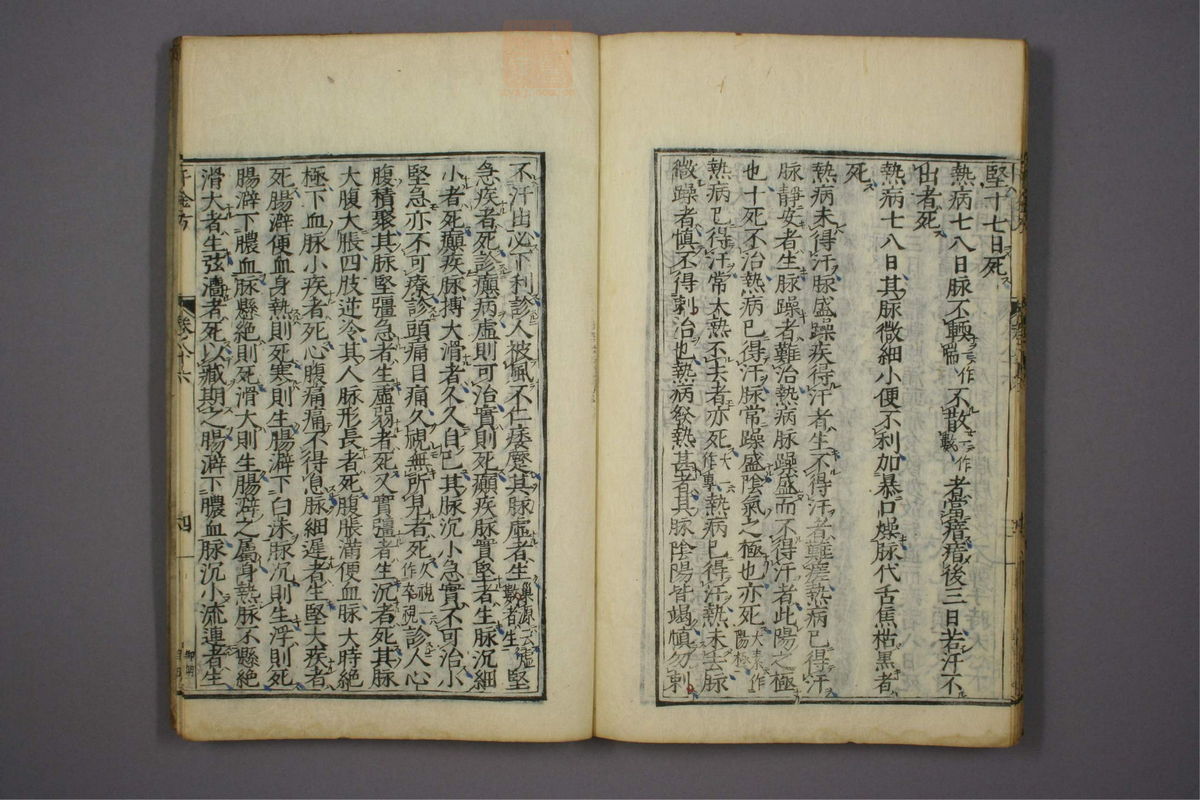 堅十七日死
熱病七八日脉不軟一作喘不散一作數者當瘖瘖後三日若汗不
出者死
熱病七八日其脉微細小便不利加暴口燥脉代舌焦枯黑者
死
熱病未得汗脉盛躁疾得汗者生不得汗者難瘥熱病已得汗
脉靜安者生脉躁者難治熱病脉躁盛而不得汗者此陽之極
也十死不治熱病已得汗脉常躁盛陰氣之極也亦死太素作陽極
熱病已得汗常大熱不去者亦死大一作專熱病已得汗熱未去脉
微躁者慎不得刺治也熱病發熱甚者其脉陰陽皆竭慎勿刺
不汗出必下利診人被風不仁痿蹷其脉虛者生巢源云虛數者生堅
急疾者死診癲病虛則可治實則死癲疾脉實堅者生脉沉細
小者死癲疾脉搏大滑者久久自已其脉沉小急實不可治小
堅急亦不可療診頭痛目痛久視無所見者死久視一作卒視診人心
腹積聚其脉堅彊急者生虛弱者死又實彊者生沉者死其脉
大腹大脹四肢逆冷其人脉形長者死腹脹滿便血脉大時絕
極下血脉小疾者死心腹痛痛不得息脉細遲者生堅大疾者
死腸澼便血身熱則死寒則生腸澼下白沫脉沉則生浮則死
腸澼下膿血脉懸絕則死滑大則生腸澼之屬身熱脉不懸絕
滑大者生弦濇者死以藏期之腸澼下膿血脉沉小流連者生
千金方
卷之八十六
四